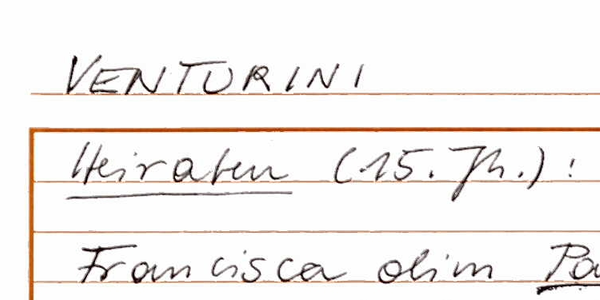 VENTURINI
Heiraten (15. Jh.):
Francisca olim